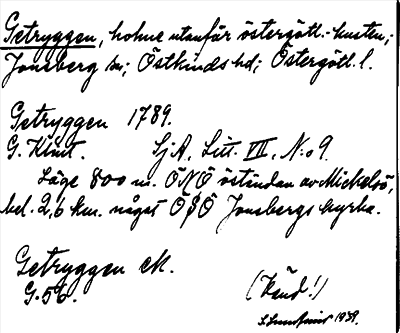 Getryggen, holme utanför östergötl. kusten;
Jonsberg sn; Östkinds hd; Östergötl. l.
Getryggen 1789.
G. Klint. SjA, Litt. VII, N:o 9.
Läge 800 m. ONO östindan av Michelsö,
bel. 2,6 km. något OSO Jonsbergs kyrka.
Getryggen ek.
G. 56. (Känd!)
1939.